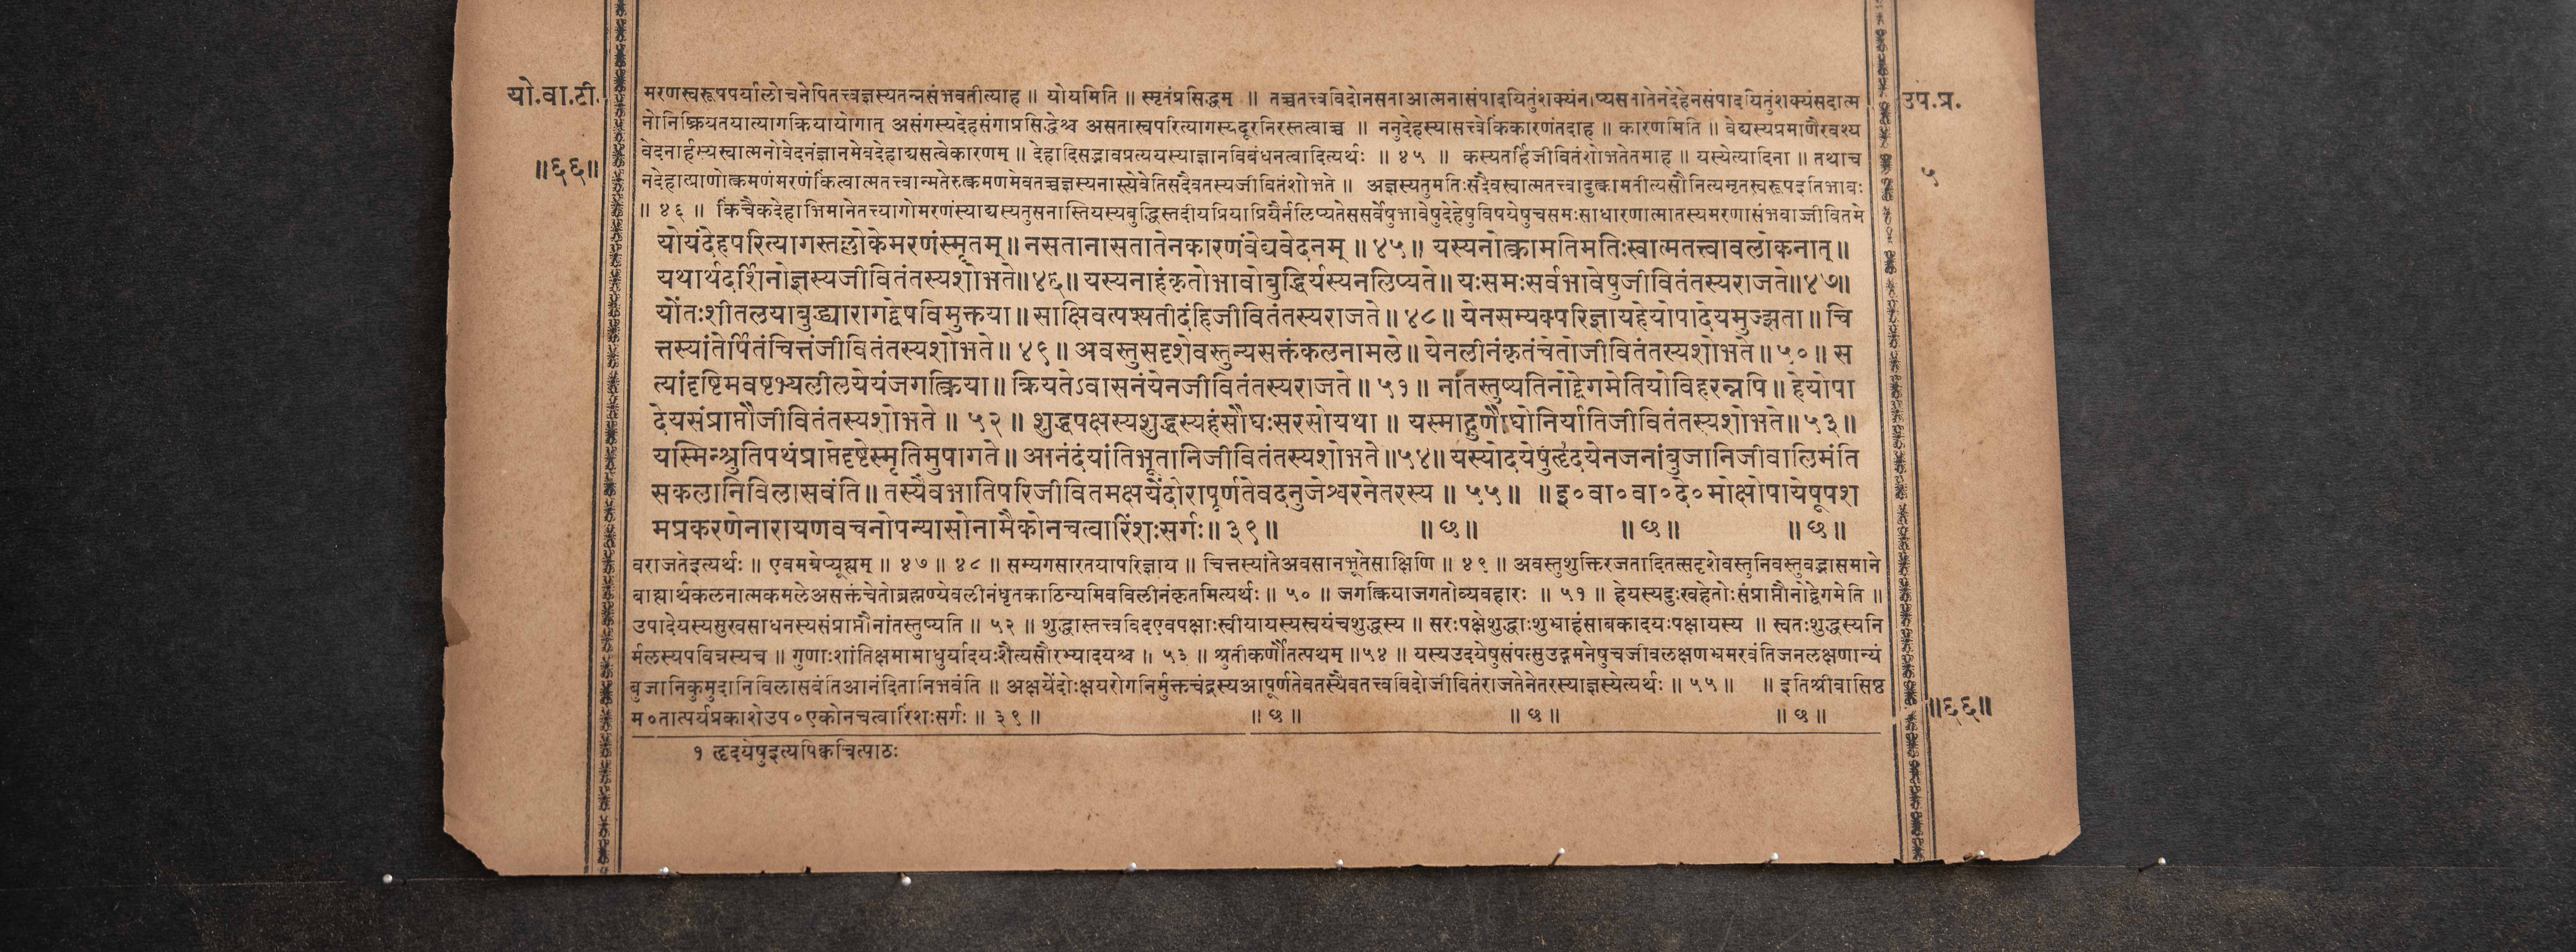 यो.वा.टी.
॥६६॥
मरणस्वरूपपर्यालोचनेपितत्त्वज्ञस्यतन्नसंभवतीत्याह ॥ योयमिति ॥ स्मृतंप्रसिद्धम् ॥ तच्चतत्त्वविदोनसताआत्मनासंपादयितुंशक्यंनाप्यसतातेनदेहेनसंपादयितुंशक्यंसदात्म
नोनिष्क्रियतयात्यागक्रियायोगात् असंगस्यदेहसंगाप्रसिद्धेश्च असतास्वपरित्यागस्यदूरनिरस्तत्वाच्च ॥ ननुदेहस्यासत्त्वेकिंकारणंतदाह ॥ कारणमिति ॥ वेद्यस्यप्रमाणैरवश्य
वेदनार्हस्यस्वात्मनोवेदनंज्ञानमेवदेहाद्यसत्वेकारणम् ॥ देहादिसद्भावप्रत्ययस्याज्ञाननिबंधनत्वादित्यर्थः ॥ ४५ ॥ कस्यतर्हिजीवितंशोभतेतमाह ॥ यस्येत्यादिना ॥ तथाच
नदेहात्प्राणोत्क्रमणंमरणंकिंत्वात्मतत्त्वान्मतेरुत्क्रमणमेवतच्चज्ञस्यनास्त्येवेतिसदैवतस्यजीवितंशोभते ॥ अज्ञस्यतुमतिःसदैवस्वात्मतत्त्वादुत्क्रामतीत्यसौनित्यमृतस्वरूपइतिभावः
॥ ४६ ॥ किंचैकदेहाभिमानेतत्त्यागोमरणंस्याद्यस्यतुसनास्तियस्यबुद्धिस्तदीयप्रियाप्रियैर्नलिप्यतेससर्वेषुभावेषुदेहेषुविषयेषुचसमःसाधारणात्मातस्यमरणासंभवाज्जीवितमे
योयंदेहपरित्यागस्तल्लोकेमरणंस्मृतम् ॥ नसतानासतातेनकारणंवेद्यवेदनम् ॥ ४५ ॥ यस्यनोत्क्रामतिमतिःस्वात्मतत्त्वावलोकनात् ॥
यथार्थदर्शिनोज्ञस्यजीवितंतस्यशोभते ॥ ४६ ॥ यस्यनाहंकृतोभावोबुद्धिर्यस्यनलिप्यते ॥ यःसमःसर्वभावेषुजीवितंतस्यराजते ॥ ४७ ॥
योंतःशीतलयाबुद्ध्यारागद्वेषविमुक्तया ॥ साक्षिवत्पश्यतीदंहिजीवितंतस्यराजते ॥ ४८ ॥ येनसम्यक्परिज्ञायहेयोपादेयमुज्झता ॥ चि
त्तस्यांतेर्पितंचित्तंजीवितंतस्यशोभते ॥ ४९ ॥ अवस्तुसदृशेवस्तुन्यसक्तंकलनामले ॥ येनलीनंकृतंचेतोजीवितंतस्यशोभते ॥ ५० ॥ स
त्यांदृष्टिमवष्टभ्यलीलयेयंजगत्क्रिया ॥ क्रियतेऽवासनंयेनजीवितंतस्यराजते ॥ ५१ ॥ नांतस्तुष्यतिनोद्वेगमेतियोविहरन्नपि ॥ हेयोपा
देयसंप्राप्तौजीवितंतस्यशोभते ॥ ५२ ॥ शुद्धपक्षस्यशुद्धस्यहंसौघःसरसोयथा ॥ यस्माद्गुणौघोनिर्यातिजीवितंतस्यशोभते ॥ ५३ ॥
यस्मिन्श्रुतिपथंप्राप्तेदृष्टेस्मृतिमुपागते ॥ आनंदंयांतिभूतानिजीवितंतस्यशोभते ॥ ५४ ॥ यस्योदयेषुहृदयेनजनांबुजानिजीवालिमंति
सकलानिविलासवंति ॥ तस्यैवभातिपरिजीवितमक्षयेंदोरापूर्णतेवदनुजेश्वरनेतरस्य ॥ ५५ ॥ ॥ इ॰वा॰वा॰दे॰मोक्षोपायेषूपश
मप्रकरणेनारायणवचनोपन्यासोनामैकोनचत्वारिंशःसर्गः ॥ ३९ ॥ ॥ छ ॥ ॥ छ ॥ ॥ छ ॥
वराजतेइत्यर्थः ॥ एवमग्रेप्यूह्यम् ॥ ४७ ॥ ४८ ॥ सम्यगसारतयापरिज्ञाय ॥ चित्तस्यांतेअवसानभूतेसाक्षिणि ॥ ४९ ॥ अवस्तुशुक्तिरजतादितत्सदृशेवस्तुनिवस्तुवद्भासमाने
बाह्यार्थकलनात्मकमलेअसक्तंचेतोब्रह्मण्येवलीनंघृतकाठिन्यमिवविलीनंकृतमित्यर्थः ॥ ५० ॥ जगत्क्रियाजगतोव्यवहारः ॥ ५१ ॥ हेयस्यदुःखहेतोःसंप्राप्तौनोद्वेगमेति ॥
उपादेयस्यसुखसाधनस्यसंप्राप्तौनांतस्तुष्यति ॥ ५२ ॥ शुद्धास्तत्त्वविदएवपक्षाःस्वीयायस्यस्वयंचशुद्धस्य ॥ सरःपक्षेशुद्धाःशुभ्राहंसाबकादयःपक्षायस्य ॥ स्वतःशुद्धस्यनि
र्मलस्यपवित्रस्यच ॥ गुणाःशांतिक्षमामाधुर्यादयःशैत्यसौरभ्यादयश्च ॥ ५३ ॥ श्रुतीकर्णौतत्पथम् ॥ ५४ ॥ यस्यउदयेषुसंपत्सुउद्गमनेषुचजीवलक्षणभ्रमरवंतिजनलक्षणान्यं
बुजानिकुमुदानिविलासवंतिआनंदितानिभवंति ॥ अक्षयेंदोःक्षयरोगनिर्मुक्तचंद्रस्यआपूर्णतेवतस्यैवतत्त्वविदोजीवितंराजतेनेतरस्याज्ञस्येत्यर्थः ॥ ५५ ॥ ॥ इतिश्रीवासिष्ठ
म॰तात्पर्यप्रकाशेउप॰एकोनचत्वारिंशःसर्गः ॥ ३९ ॥ ॥ छ ॥ ॥ छ ॥ ॥ छ ॥
१ हृदयेषुइत्यपिक्वचित्पाठः
उप.प्र.
५
॥६६॥